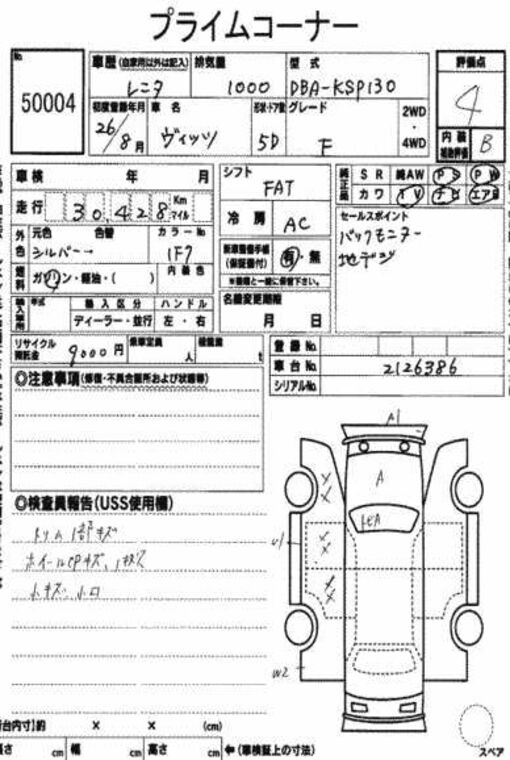 プライムコーナー
No
50004
車歴 (自家用以外は記入) 排気量 型式
レンタ 1000 DBA-KSP130
初度登録年月 車名 形状・ドア数 グレード 2WD
26/8月 ヴィッツ 5D F ・
4WD
評価点
4
内装
補助評価 B
車検 年 月
走行 30,428 Km
マイル
外色 元色 色替 カラーNo
シルバー 1F7
燃料 ガソリン・軽油・( ) 内装色
輸入車用 年式 輸入区分 ハンドル
ディーラー・並行 左・右
シフト
FAT
冷房 AC
新車整備手帳
(保証書付) 有・無
※書類と一緒に保管下さい。
名義変更期限
月 日
純正品 SR 純AW PS PW
カワ TV ナビ エアB
セールスポイント
バックモニター
地デジ
リサイクル
預託金 9000円 乗車定員 人 積載量 t
登録No.
車台No. 2126386
シリアルNo.
◎注意事項 (修復・不具合箇所および状態等)
◎検査員報告(USS使用欄)
トリム1部キズ
小キズ、小凹
A1
A
U1
W2
×
×
×
×
×
×
スペア
台内寸)約 × × (cm)
長さ cm 幅 cm 高さ cm ←(車検証上の寸法)